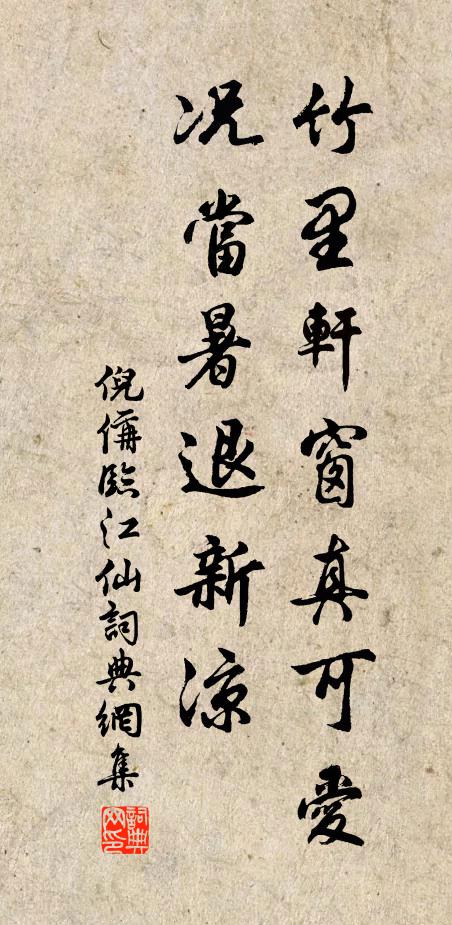 竹里軒窗真可愛
况當暑退新凉
倪偁臨江仙詞典網集
詞典网印